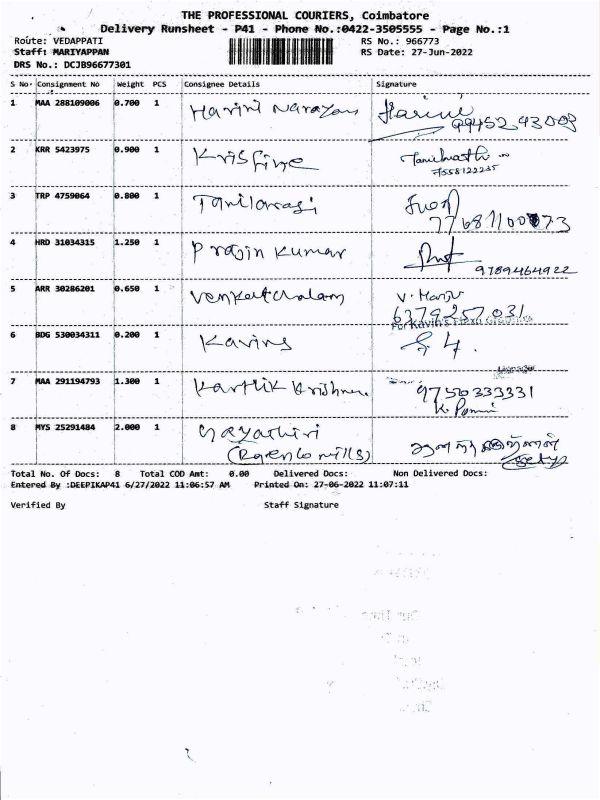 THE PROFESSIONAL COURIERS, Coimbatore
Delivery Runsheet - P41 - Phone No.:0422-3505555 - Page No.:1
Route: VEDAPPATI RS No.: 966773
Staff: MARIYAPPAN RS Date: 27-Jun-2022
DRS No.: DCJB96677301
S No. Consignment No Weight PCS Consignee Details Signature
1 MAA 288109006 0.700 1 Harini Narayan Harini
99452 43003
2 KRR 5423975 0.900 1
7558122235
3 TRP 4759064 0.800 1 Tamilarasi
4 HRD 31034315 1.250 1 Pragin Kumar
9789464922
5 ARR 30286201 0.650 1 Venkatchalam V. Manju
6379257031
For Kavin's
6 BDG 530034311 0.200 1 Kavins
Manager
7 MAA 291194793 1.300 1 Karthik Krishna 9750333331
8 MYS 25291484 2.000 1 Gayathiri
Total No. Of Docs: 8 Total COD Amt: 0.00 Delivered Docs: Non Delivered Docs:
Entered By :DEEPIKAP41 6/27/2022 11:06:57 AM Printed On: 27-06-2022 11:07:11
Verified By Staff Signature